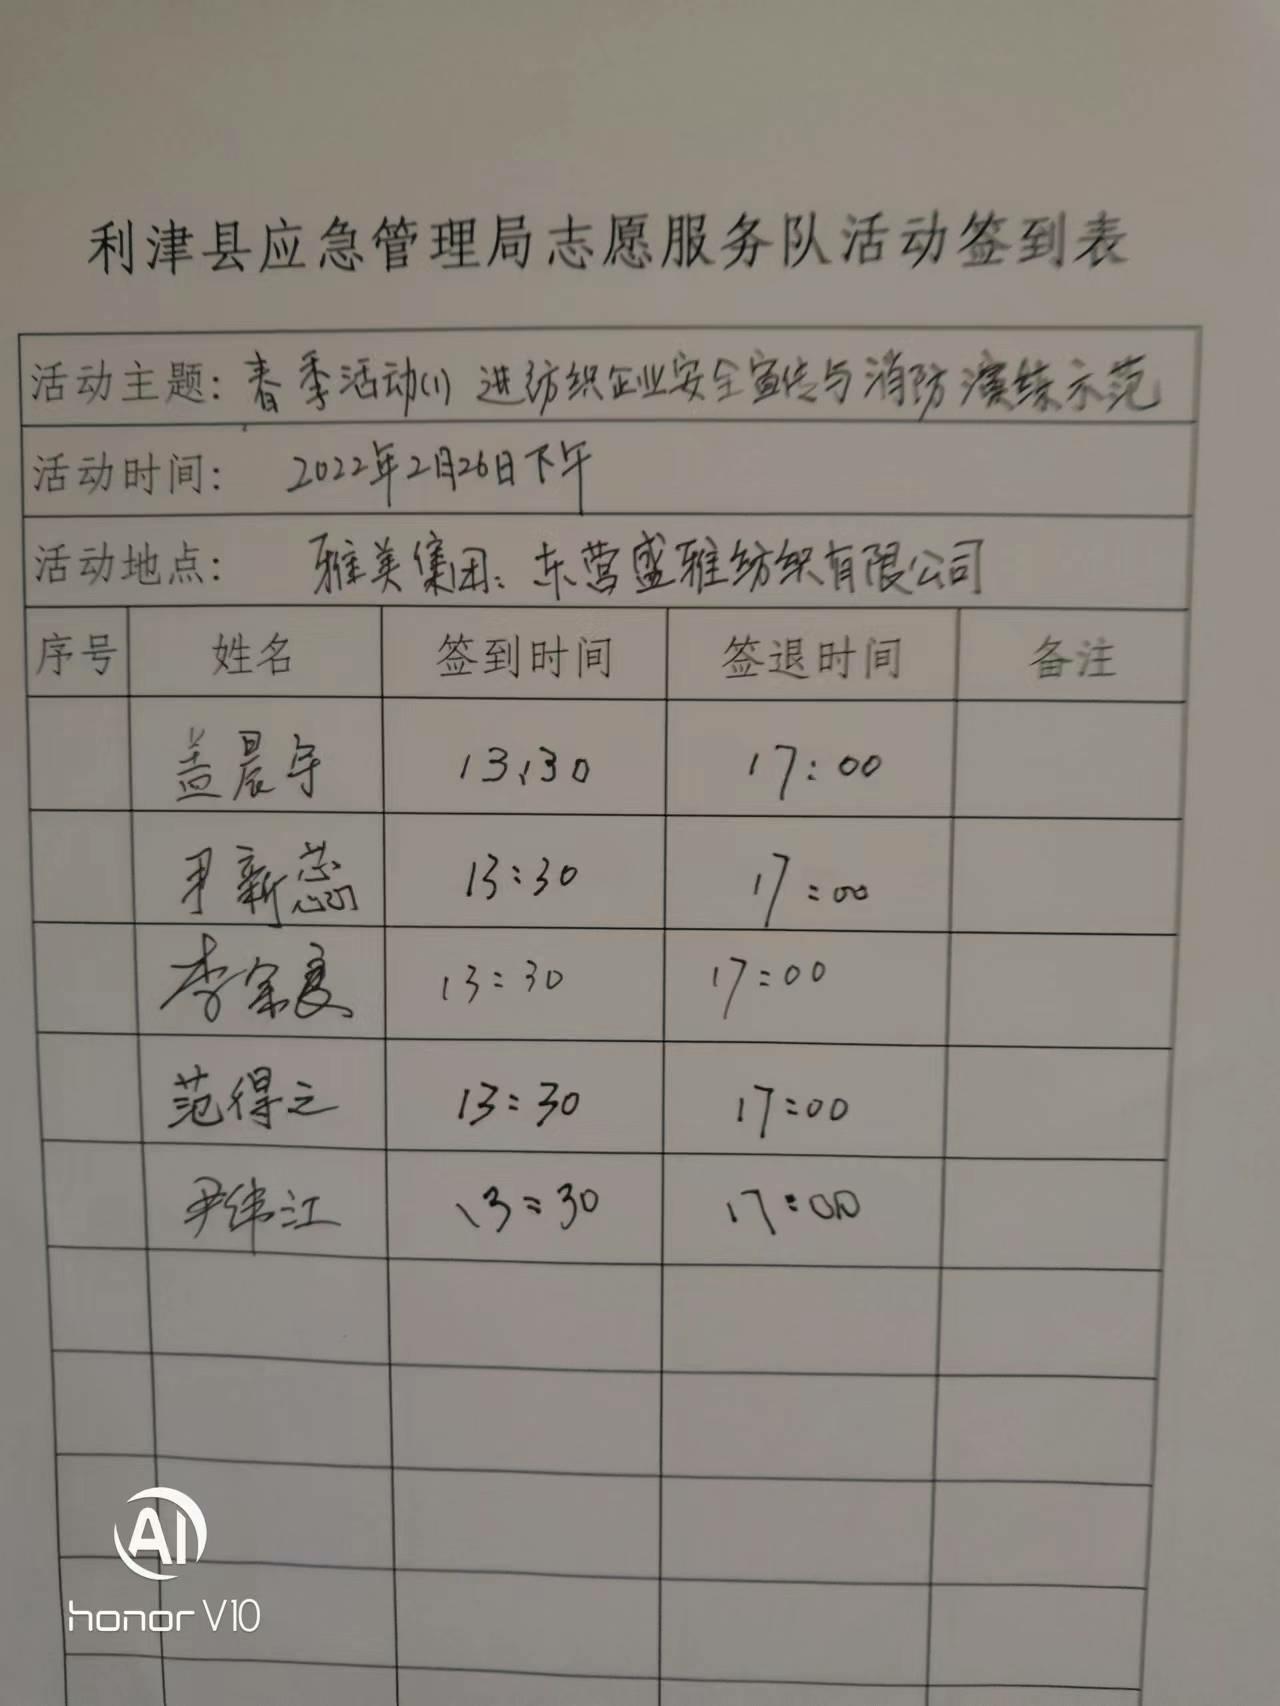 利津县应急管理局志愿服务队活动签到表
活动主题：春季活动(1) 进纺织企业安全宣传与消防演练示范
活动时间： 2022年2月26日下午
活动地点： 雅美集团：东营盛雅纺织有限公司
序号 姓名 签到时间 签退时间 备注
盖晨宇 13:30 17:00
尹新蕊 13:30 17:00
李宗良 13:30 17:00
范得之 13:30 17:00
尹纬江 13:30 17:00
AI
honor V10